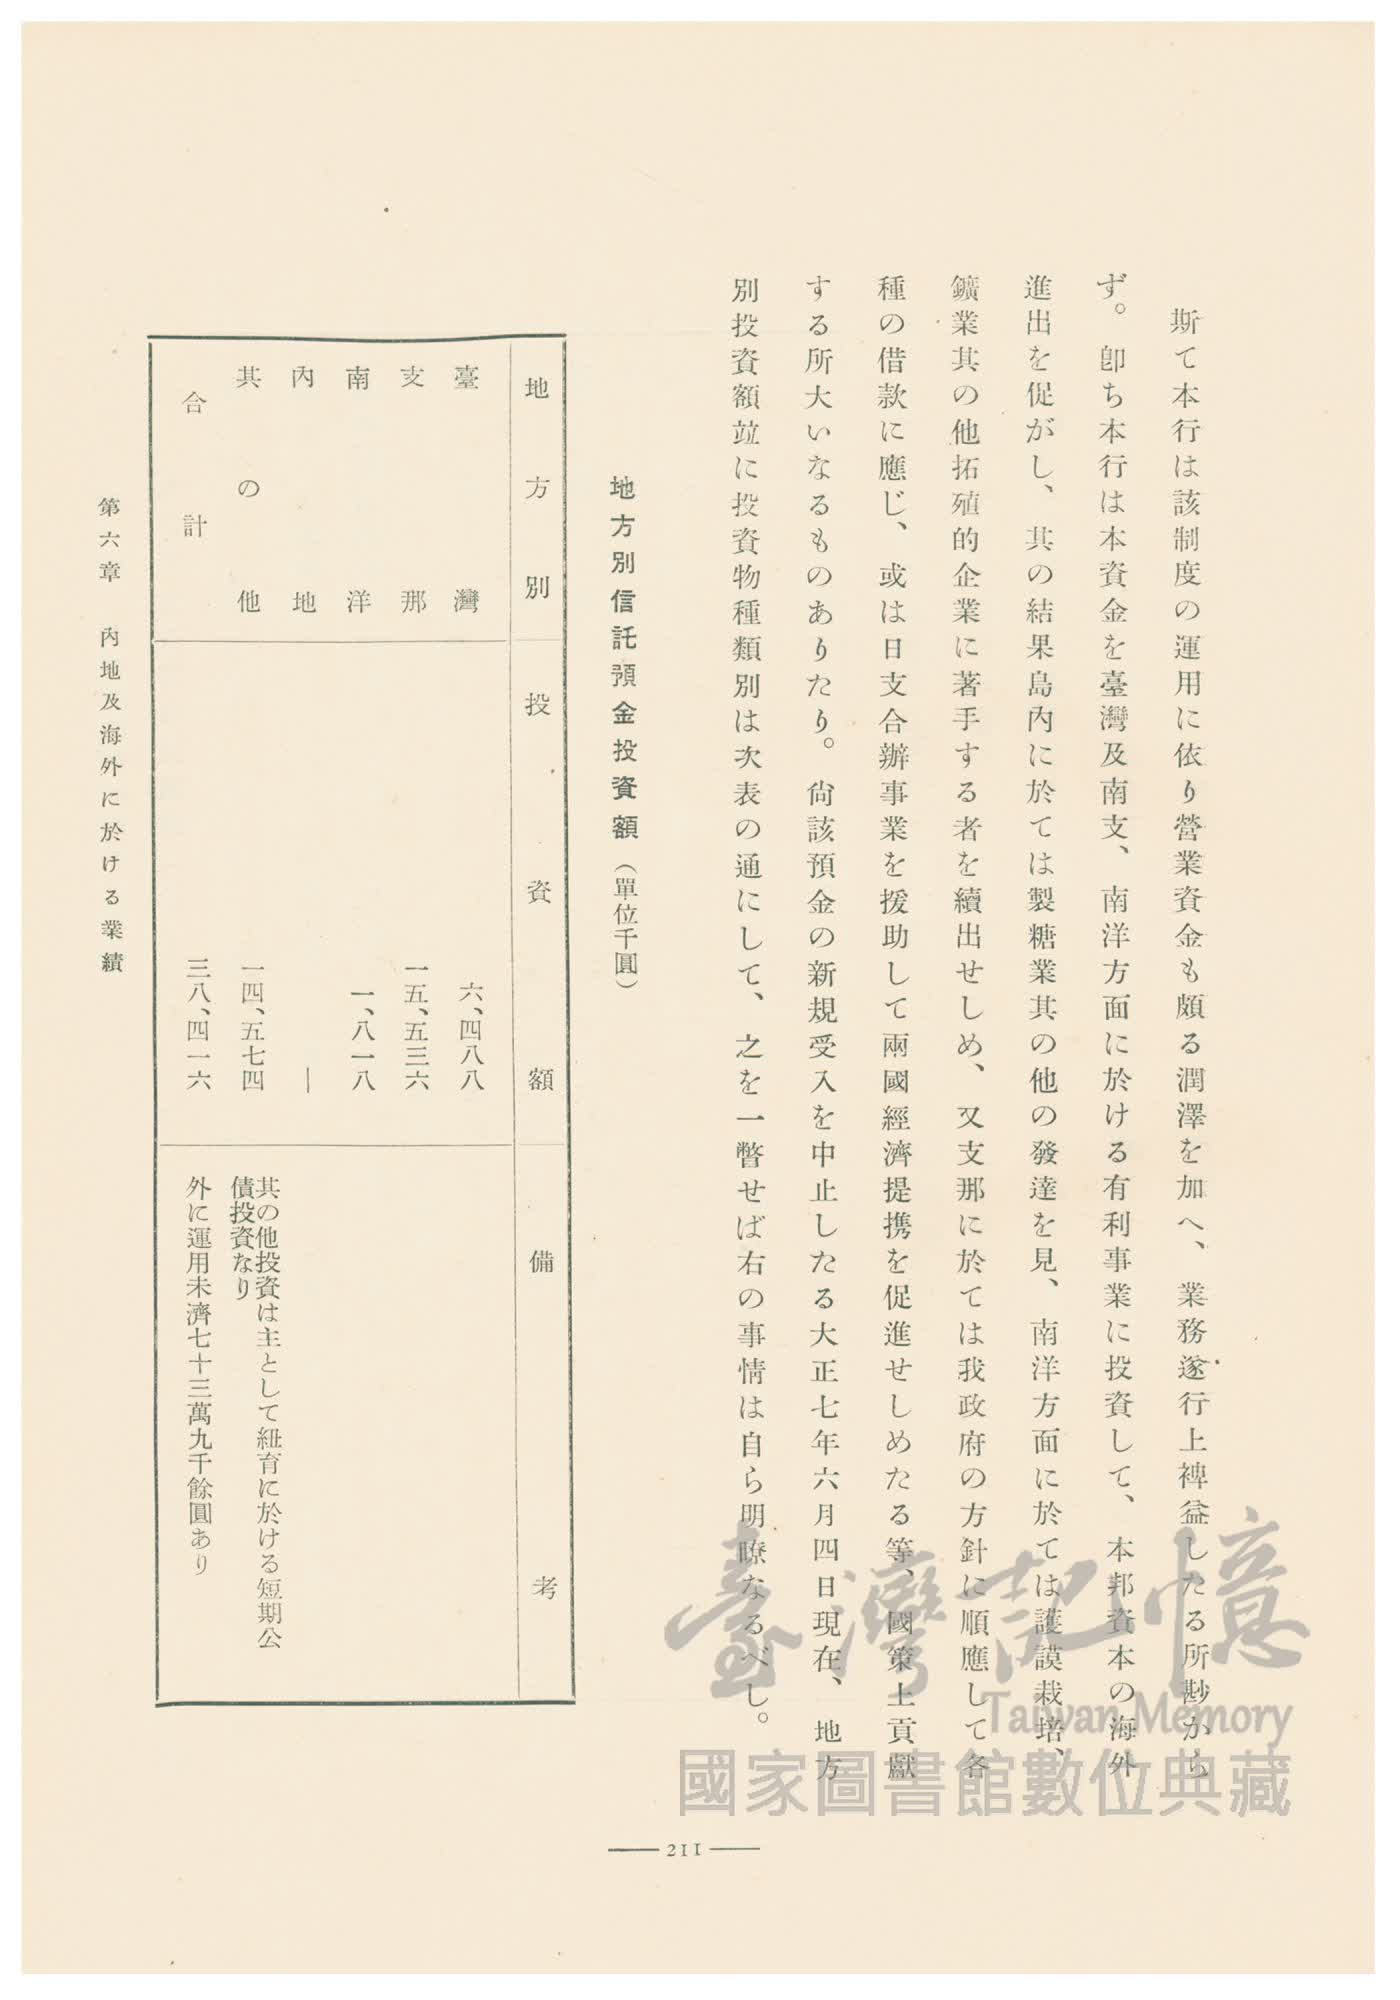 斯て本行は該制度の運用に依り營業資金も頗る潤澤を加へ、業務遂行上裨益したる所尠から
ず。卽ち本行は本資金を臺灣及南支、南洋方面に於ける有利事業に投資して、本邦資本の海外
進出を促がし、其の結果島內に於ては製糖業其の他の發達を見、南洋方面に於ては護謨栽培、
鑛業其の他拓殖的企業に著手する者を續出せしめ、又支那に於ては我政府の方針に順應して各
種の借款に應じ、或は日支合辦事業を援助して兩國經濟提携を促進せしめたる等、國策上貢獻
する所大いなるものありたり。尙該預金の新規受入を中止したる大正七年六月四日現在、地方
別投資額竝に投資物種類別は次表の通にして、之を一瞥せば右の事情は自ら明瞭なるべし。
地方別信託預金投資額（單位千圓）
地方別 投資額 備考
臺灣 六、四八八
支那 一五、五三六
南洋 一、八一八
內地 ―
其の他 一四、五七四 其の他投資は主として紐育に於ける短期公
債投資なり
合計 三八、四一六 外に運用未濟七十三萬九千餘圓あり
第六章 內地及海外に於ける業績
211
臺灣記憶
Taiwan Memory
國家圖書館數位典藏